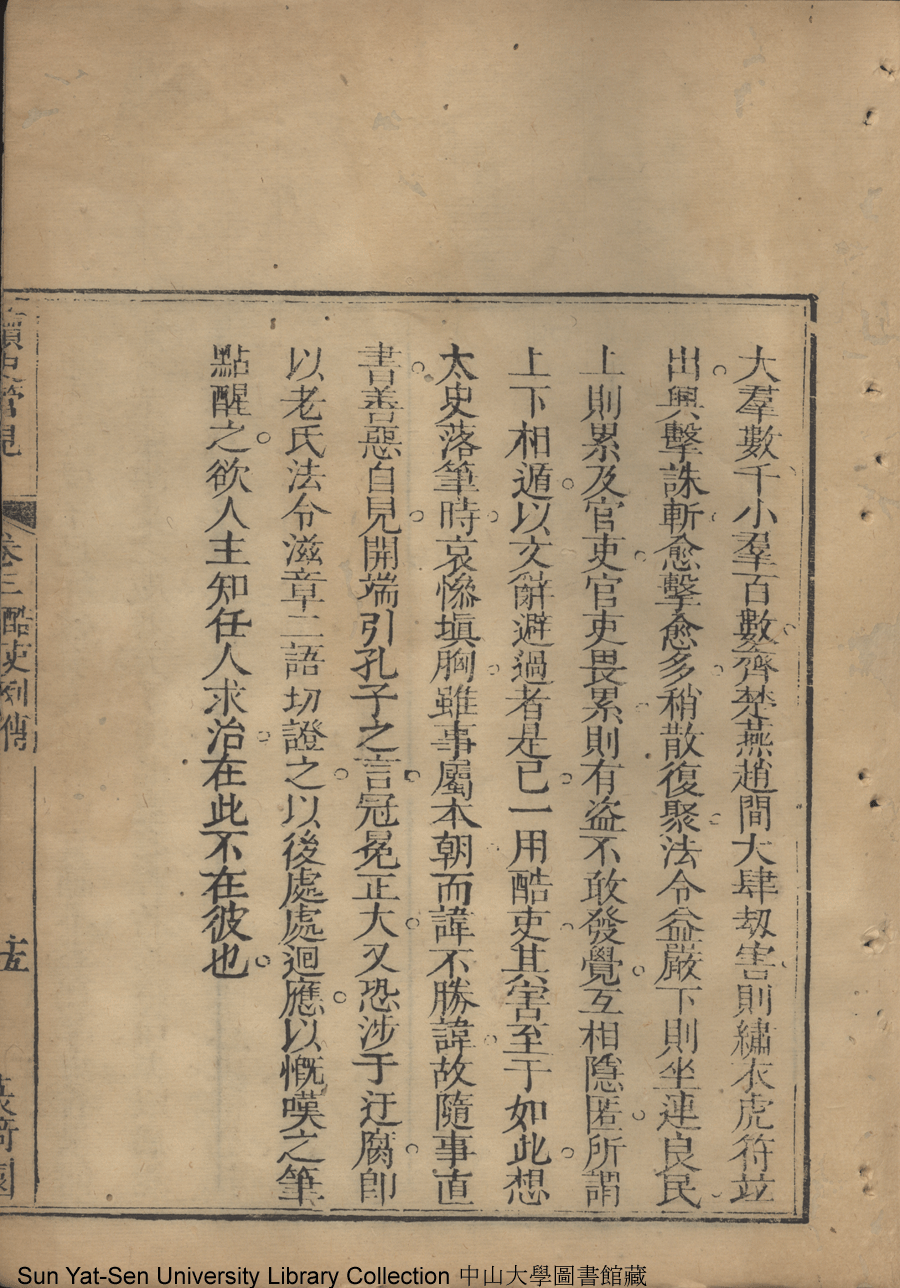 大羣數千小羣百數齊楚燕趙間大肆刼害則繡衣虎符竝
出興擊誅斬愈擊愈多稍散復聚法令益嚴下則坐連良民
上則累及官吏官吏畏累則有盗不敢發覺互相隱匿所謂
上下相遁以文辭避過者是已一用酷吏其害至于如此想
太史落筆時哀慘塡胸雖事屬本朝而諱不勝諱故隨事直
書善惡自見開端引孔子之言冠冕正大又恐涉于迂腐卽
以老氏法令滋章二語切證之以後處處迴應以慨嘆之筆
點醒之欲人主知任人求治在此不在彼也
讀史管見
卷三 酷吏列傳
Sun Yat-Sen University Library Collection 中山大學圖書館藏